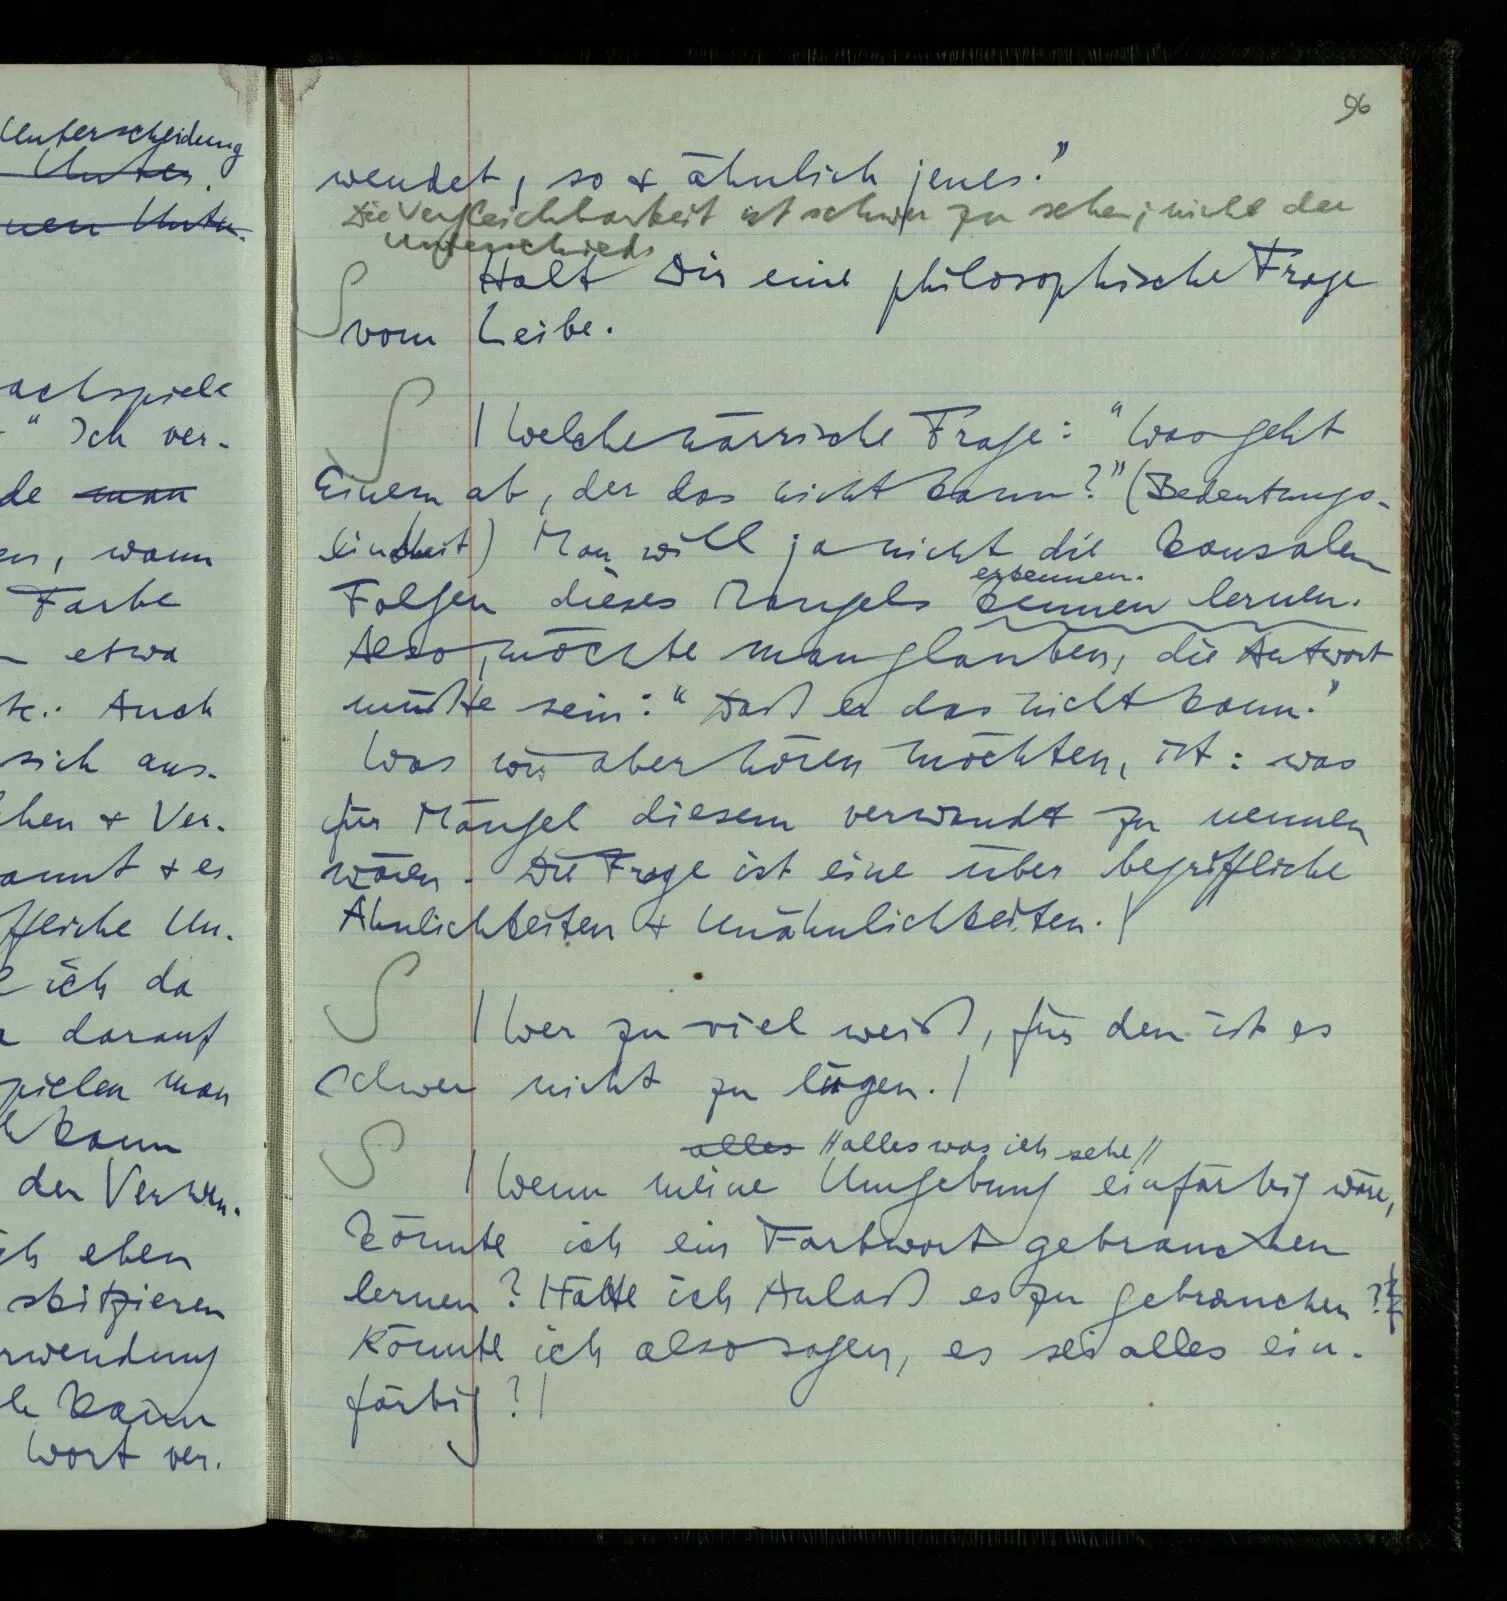 Unterscheidung
Unter.
nen Unter-
achspiele
" Ich ver-
de man
en, wann
Farbe
etwa
Auch
sich aus-
chen + Ver-
annt + es
ffliche Un-
ich da
darauf
spielen man
kann
den Verwen-
ich eben
skitzieren
rwendung
kann
Wort ver-
96
wendet, so + ähnlich jenes."
Die Vergleichbarkeit ist schwer zu sehen; nicht der
Unterschied.
Halt Dir eine philosophische Frage
vom Leibe.
S | Welche närrische Frage: "Was geht
Einem ab, der das nicht kann?" (Bedeutungs-
blindheit) Man will ja nicht die kausalen
erkennen.
Folgen dieses Mangels kennen lernen.
Also, möchte man glauben, die Antwort
müßte sein: "Daß er das nicht kann."
Was wir aber hören möchten, ist: was
für Mängel diesem verwandt zu nennen
wären. Die Frage ist eine über begriffliche
Ähnlichkeiten + Unähnlichkeiten. |
S | Wer zu viel weiß, für den ist es
schwer nicht zu lügen. |
alles //alles was ich sehe//
S | Wenn meine Umgebung einfärbig wäre,
könnte ich ein Farbwort gebrauchen
lernen? Hätte ich Anlaß es zu gebrauchen?
Könnte ich also sagen, es sei alles ein-
färbig? |